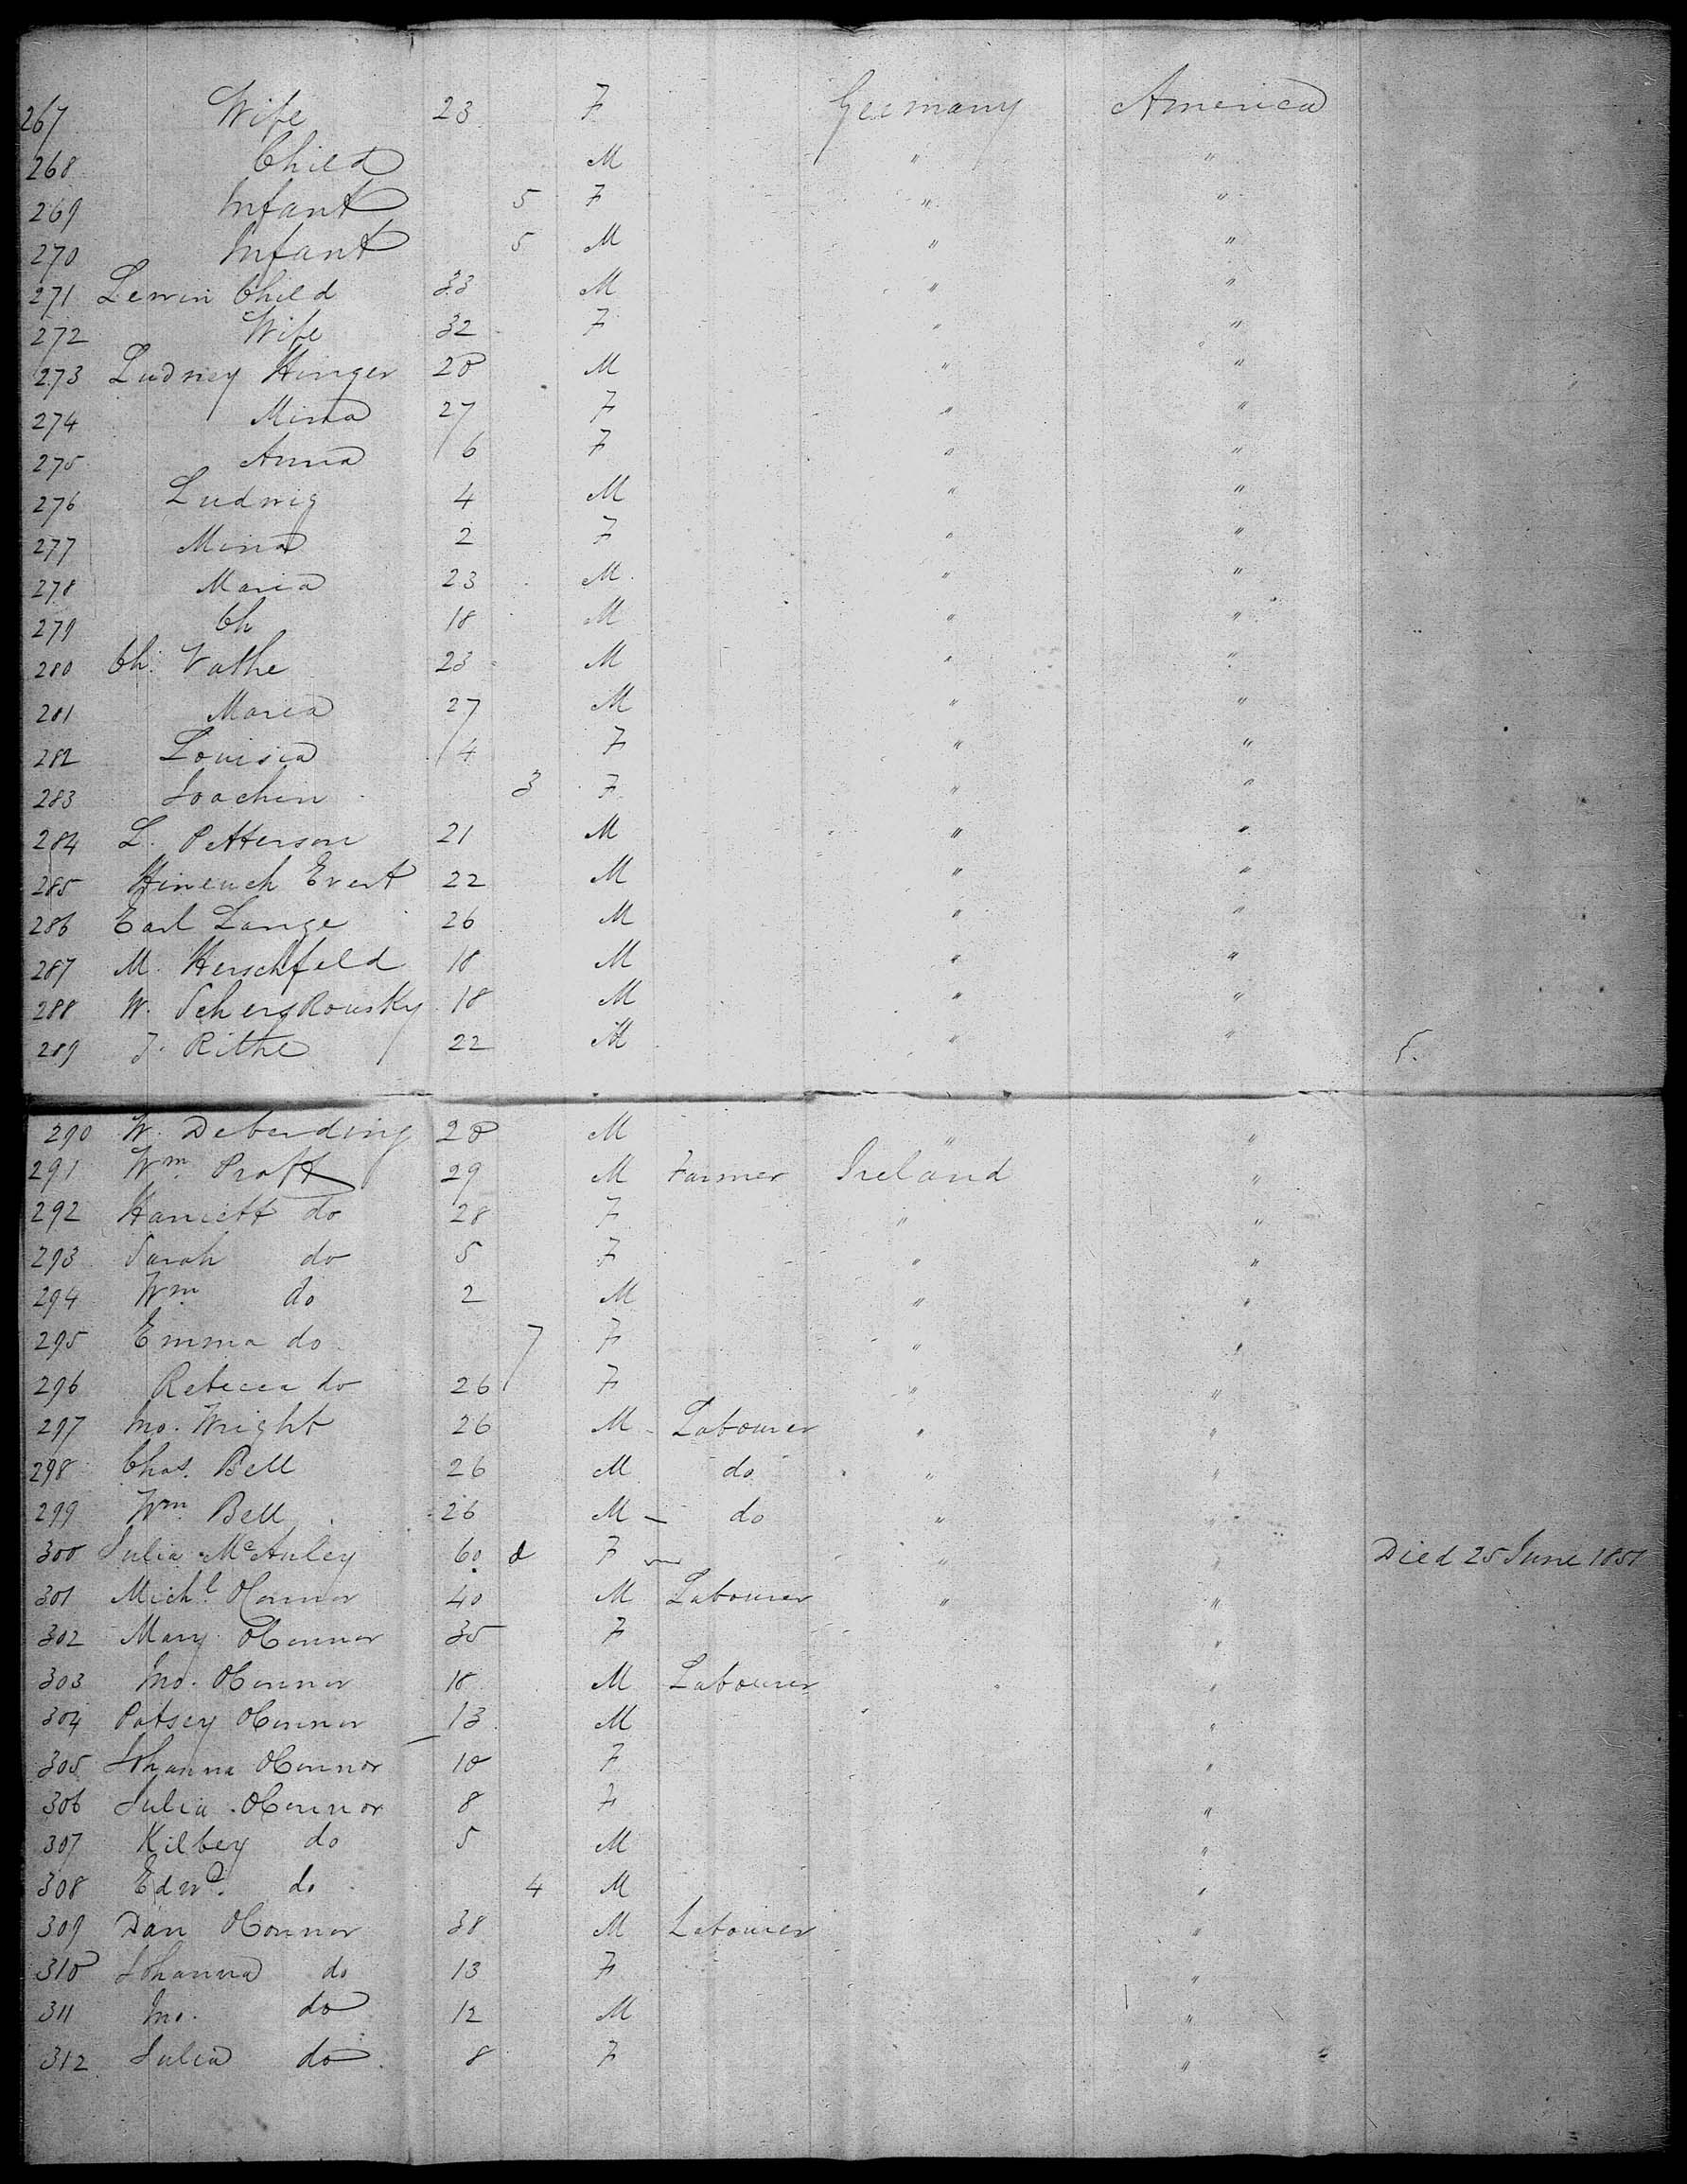 267 Wife 23 F Germany America
268 Child M " "
269 Infant 5 F " "
270 Infant 5 M " "
271 Lewin Child 33 M " "
272 Wife 32 F " "
273 Ludney Hinger 28 M " "
274 Mina 27 F " "
275 Anna 6 F " "
276 Ludwig 4 M " "
277 Mina 2 F " "
278 Maria 23 M " "
279 Ch 18 M " "
280 Ch. Vathe 23 M " "
281 Maria 27 M " "
282 Louisia 4 F " "
283 Joachin 3 F " "
284 L. Petterson 21 M " "
285 Hineuch Evert 22 M " "
286 Earl Lange 26 M " "
287 M. Herschfeld 18 M " "
288 W. 18 M " "
289 J. Rithe 22 M " "
290 W. Deberding 28 M " "
291 Wm. Proft 29 M Farmer Ireland "
292 Harriett do 28 F " "
293 Sarah do 5 F " "
294 Wm do 2 M " "
295 Emma do 7 F " "
296 Rebecca do 26 F " "
297 Jno. Wright 26 M Labourer " "
298 Chas. Bell 26 M do " "
299 Wm. Bell 26 M - do " "
300 Julia McAuley 60 d F " " Died 25 June 1851
301 Michl. OConnor 40 M Labourer " "
302 Mary OConnor 35 F "
303 Jno. OConnor 18 M Labourer "
304 Patsey OConnor 13 M "
305 Johanna OConnor 10 F "
306 Julia OConnor 8 F "
307 Kilbey do 5 M "
308 Edwd. do 4 M "
309 Dan OConnor 38 M Labourer "
310 Johanna do 13 F "
311 Jno. do 12 M "
312 Julia do 8 F "